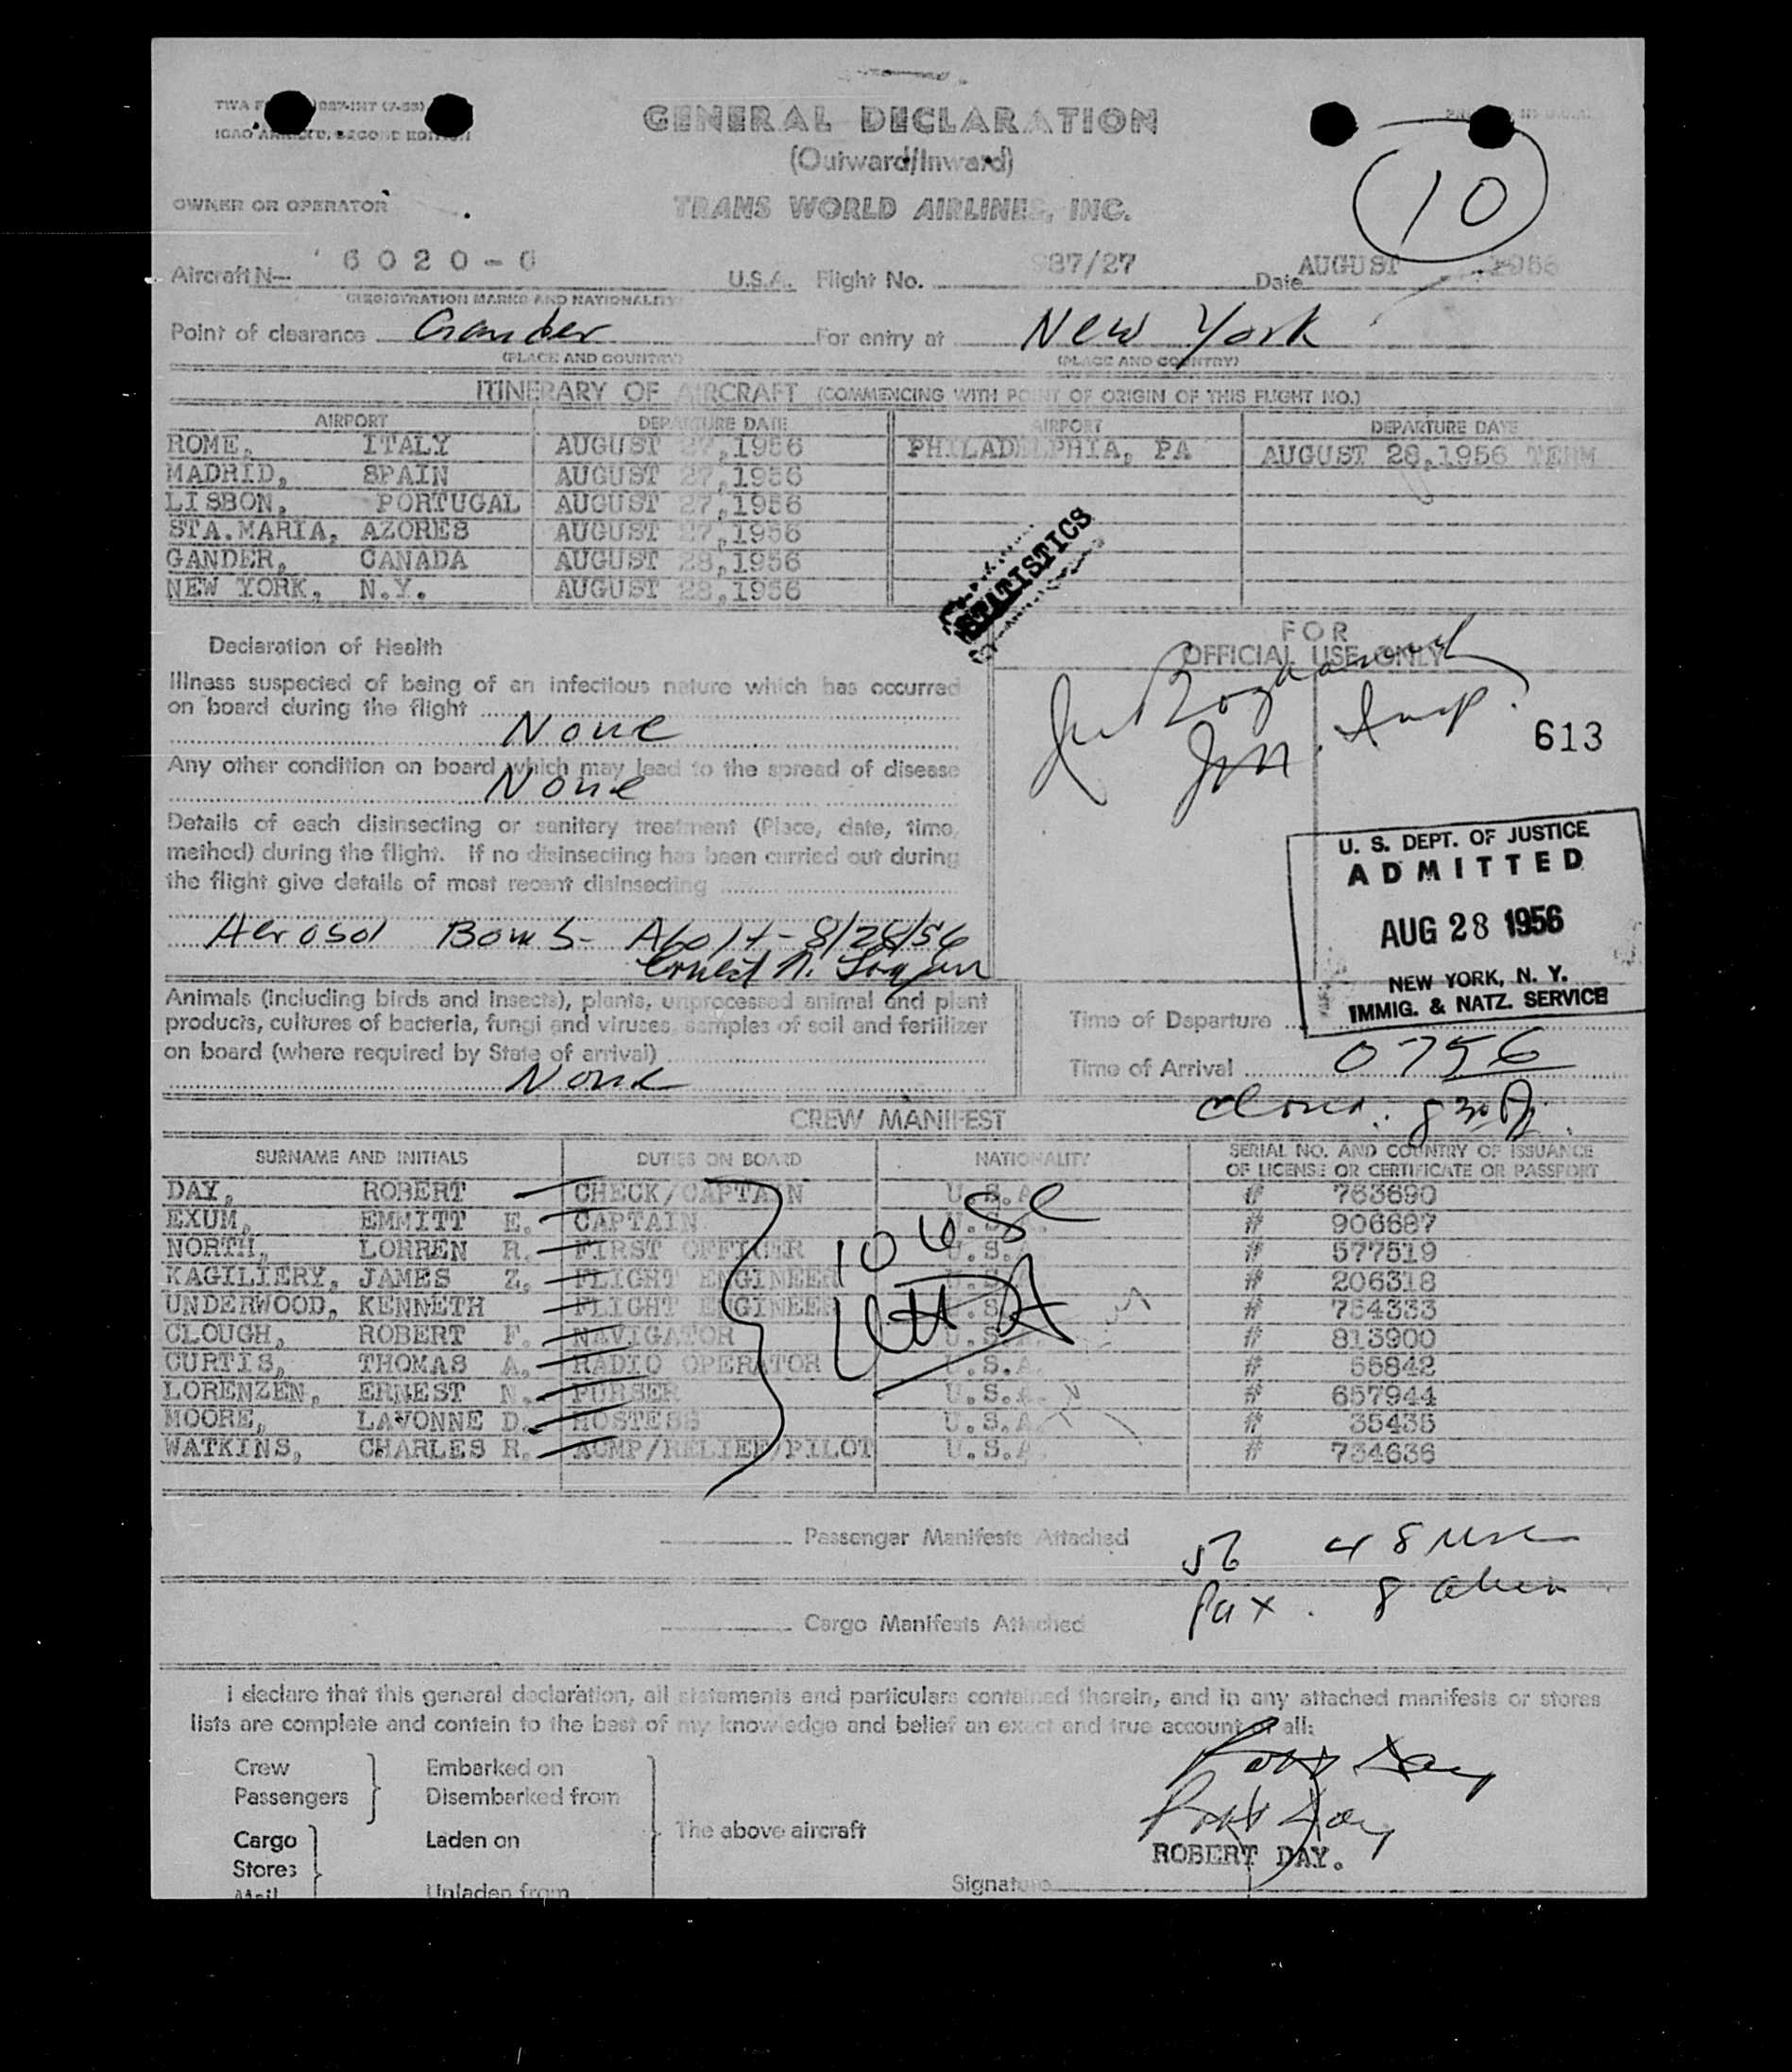 GENERAL DECLARATION
(Outward/Inward)
10
OWNER OR OPERATOR
TRANS WORLD AIRLINES, INC.
Aircraft N— 6020-C U.S.A. Flight No. 987/27 Date AUGUST 1956
(REGISTRATION MARKS AND NATIONALITY)
Point of clearance Gander For entry at New York
(PLACE AND COUNTRY) (PLACE AND COUNTRY)
ITINERARY OF AIRCRAFT (COMMENCING WITH POINT OF ORIGIN OF THIS FLIGHT NO.)
AIRPORT DEPARTURE DATE AIRPORT DEPARTURE DATE
ROME, ITALY AUGUST 27,1956 PHILADELPHIA, PA AUGUST 28,1956 TERM
MADRID, SPAIN AUGUST 27,1956
LISBON, PORTUGAL AUGUST 27,1956
STA.MARIA, AZORES AUGUST 27,1956
GANDER, CANADA AUGUST 28,1956
NEW YORK, N.Y. AUGUST 28,1956
STATISTICS
Declaration of Health
Illness suspected of being of an infectious nature which has occurred
on board during the flight
None
Any other condition on board which may lead to the spread of disease
None
Details of each disinsecting or sanitary treatment (Place, date, time,
method) during the flight. If no disinsecting has been carried out during
the flight give details of most recent disinsecting
Aerosol Bomb- 8/28/56
Ernest N.
FOR
OFFICIAL USE ONLY
Imm. Insp.
613
U. S. DEPT. OF JUSTICE
ADMITTED
AUG 28 1956
NEW YORK, N. Y.
IMMIG. & NATZ. SERVICE
Animals (including birds and insects), plants, unprocessed animal and plant
products, cultures of bacteria, fungi and viruses, samples of soil and fertilizer
on board (where required by State of arrival)
None
Time of Departure
Time of Arrival 0756
CREW MANIFEST
SURNAME AND INITIALS DUTIES ON BOARD NATIONALITY SERIAL NO. AND COUNTRY OF ISSUANCE
OF LICENSE OR CERTIFICATE OR PASSPORT
DAY, ROBERT CHECK/CAPTAIN U.S.A. # 763690
EXUM, EMMITT E. CAPTAIN U.S.A. # 906687
NORTH, LORREN R. FIRST OFFICER U.S.A. # 577519
KAGILIERY, JAMES Z. FLIGHT ENGINEER U.S.A. # 206318
UNDERWOOD, KENNETH FLIGHT ENGINEER U.S.A. # 764333
CLOUGH, ROBERT F. NAVIGATOR U.S.A. # 813900
CURTIS, THOMAS A. RADIO OPERATOR U.S.A. # 55842
LORENZEN, ERNEST N. PURSER U.S.A. # 657944
MOORE, LAVONNE D. HOSTESS U.S.A. # 35435
WATKINS, CHARLES R. ACMP/RELIEF/PILOT U.S.A. # 734636
10 USC
Passenger Manifests Attached
56 48 USC
Pax. 8 alien
Cargo Manifests Attached
I declare that this general declaration, all statements and particulars contained therein, and in any attached manifests or stores
lists are complete and contain to the best of my knowledge and belief an exact and true account of all:
Crew Embarked on
Passengers Disembarked from
The above aircraft
Cargo Laden on
Stores
Mail Unladen from
Robt Day
Robt Day
ROBERT DAY.
Signature